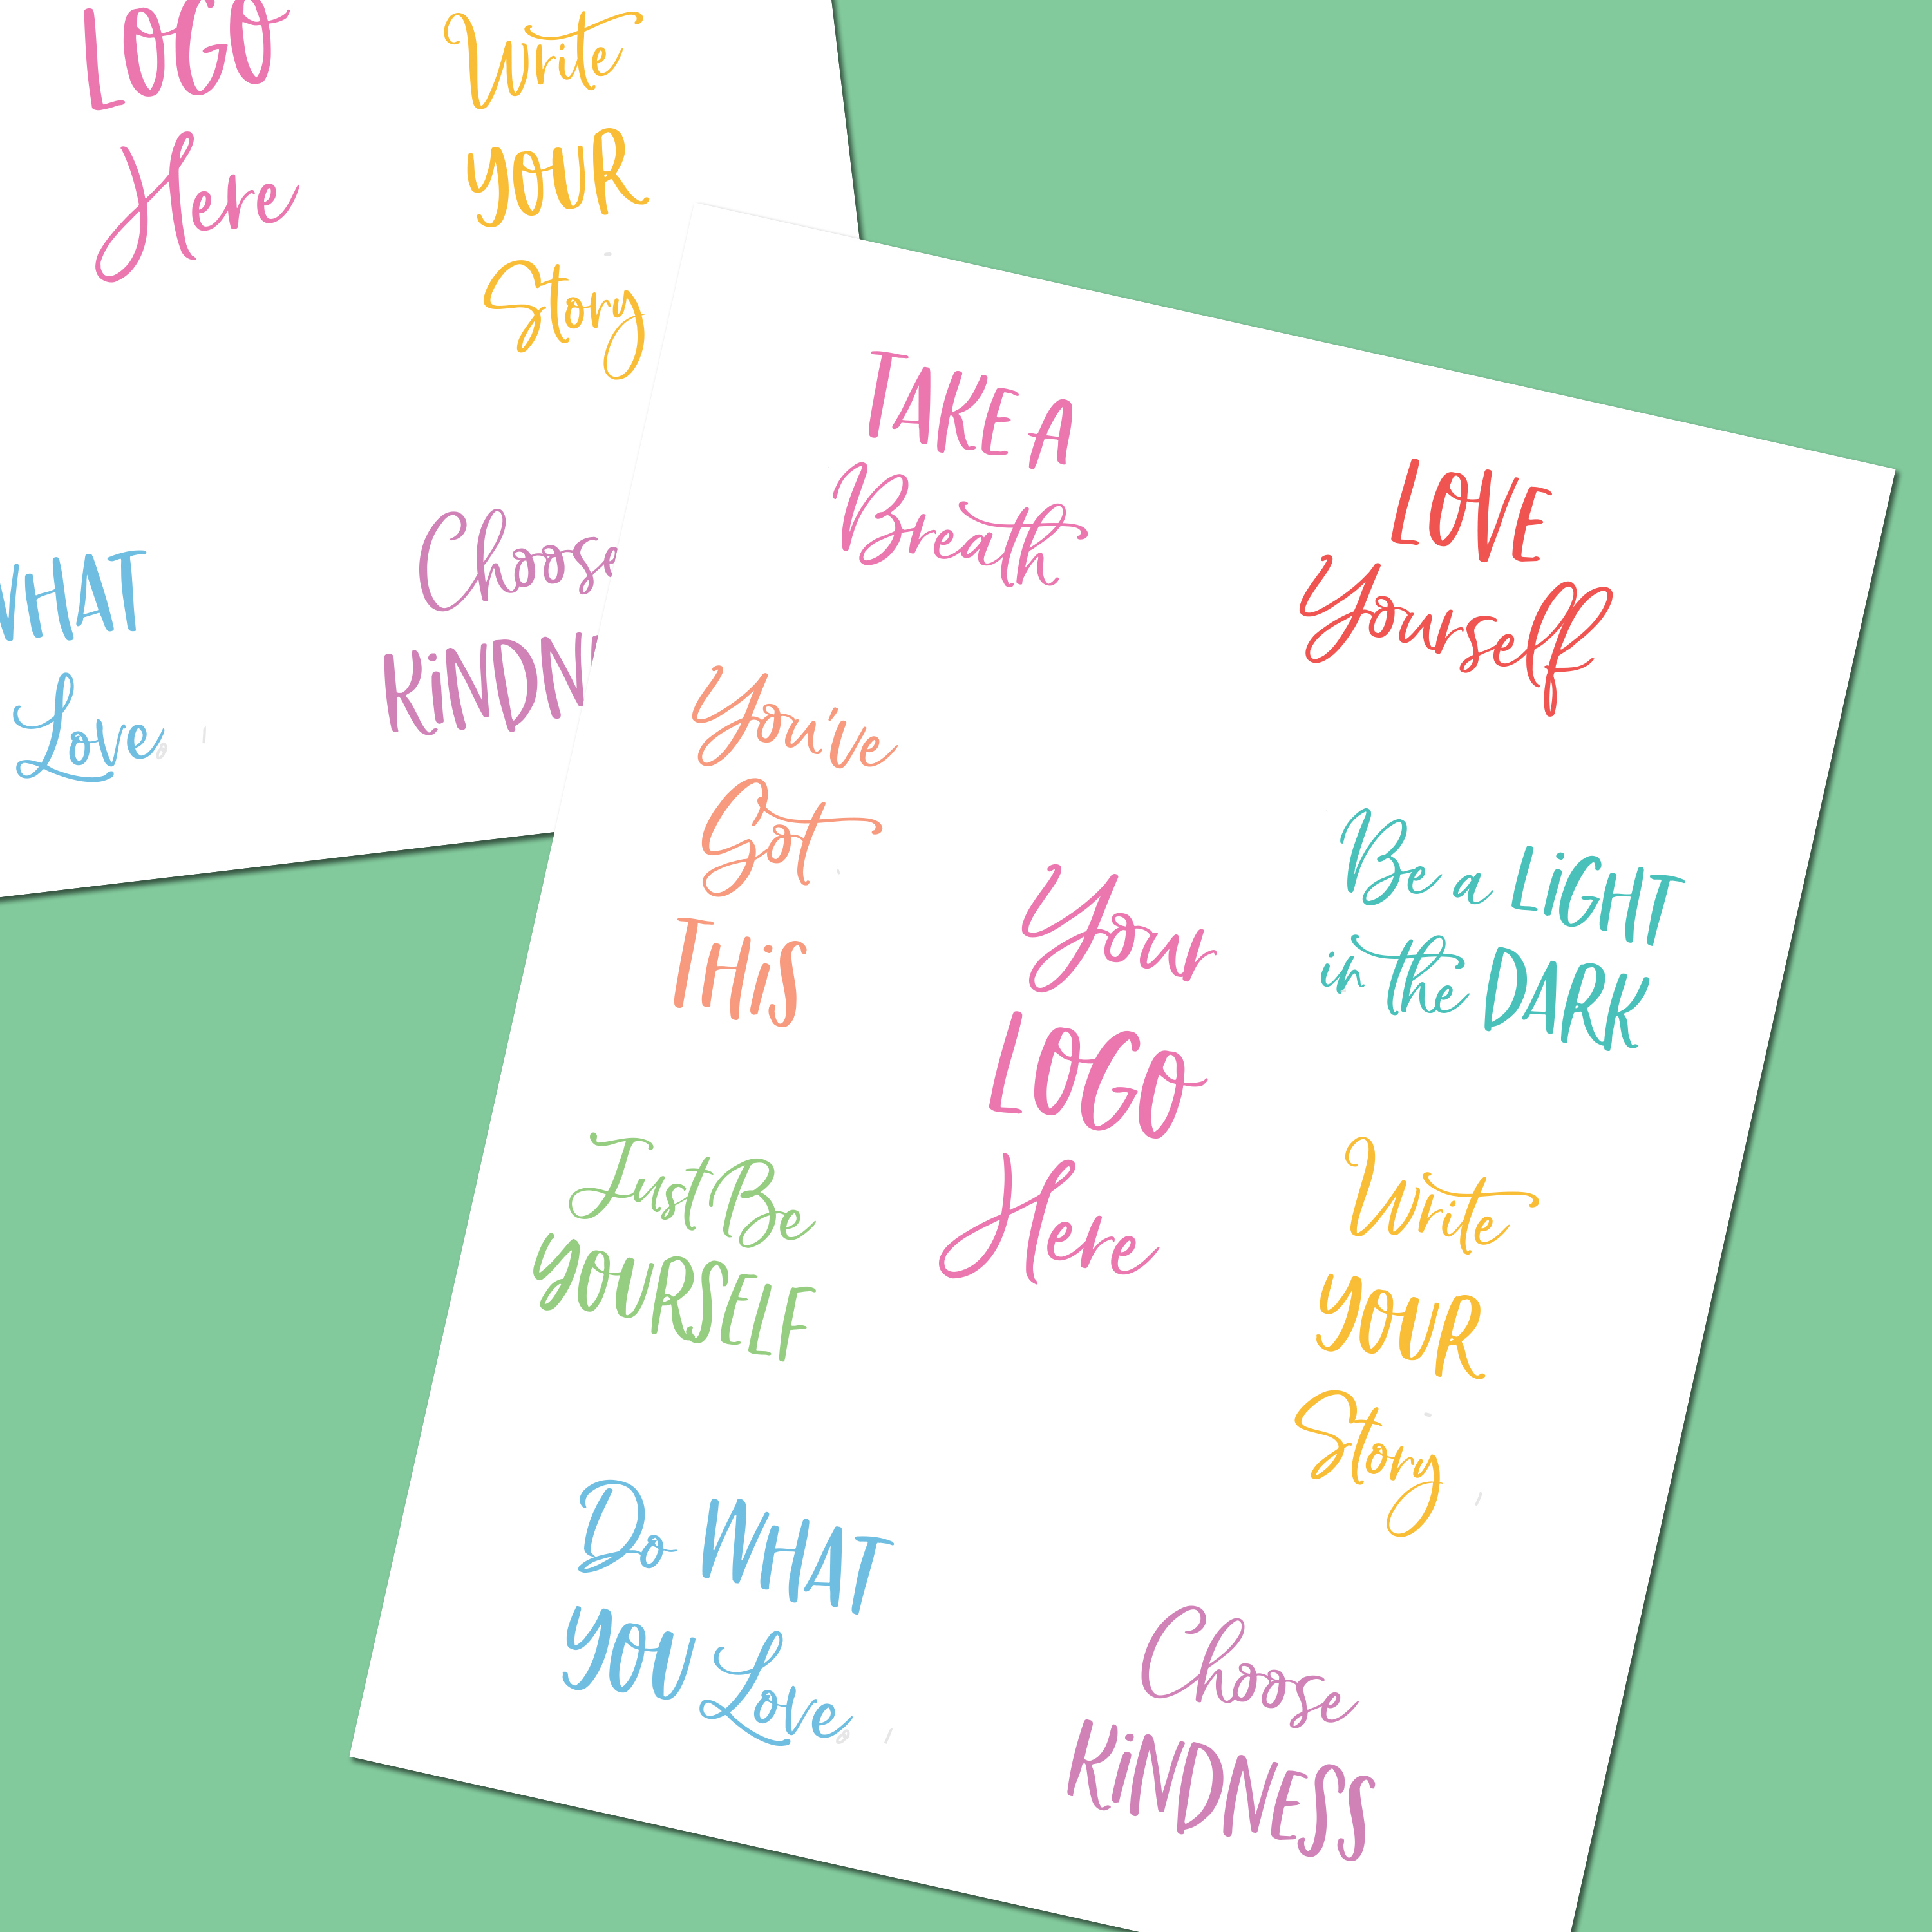 LOGO
Here
Write
YOUR
Story
WHAT
Love
Choose
KiNDN
TAKE A
Breath
LOVE
Yourself
You've
Got
THiS
You
LOGO
Here
Be a LiGHT
in the DARK
Just Be
YOURSELF
Write
YOUR
Story
Do WHAT
YOU Love
Choose
KiNDNESS